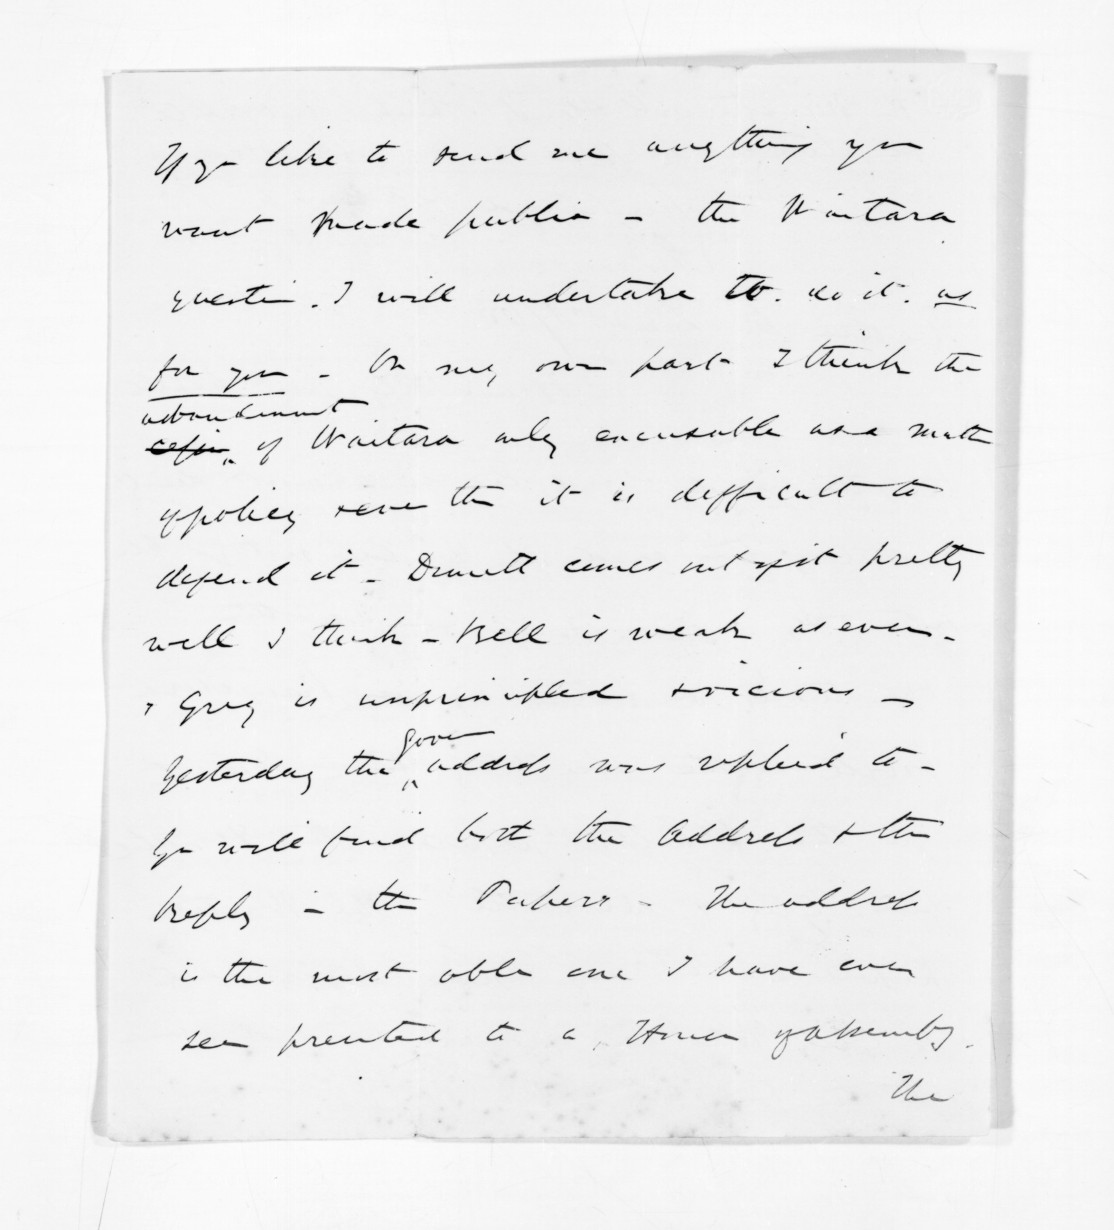 If you like to send me anything you
want made public - the Waitara
question. I will undertake to do it. as
for you - On my own part I think the
abandonment
of Waitara only excusable as a matter
of policy & even then it is difficult to
defend it - Domett comes out of it pretty
well I think - Bell is weak as ever -
& Grey is unprincipled & vicious -
Govrs
Yesterday the address was replied to -
You will find both the address & the
reply in the Papers - The address
is the most able one I have ever
seen presented to a House of Assembly.
The